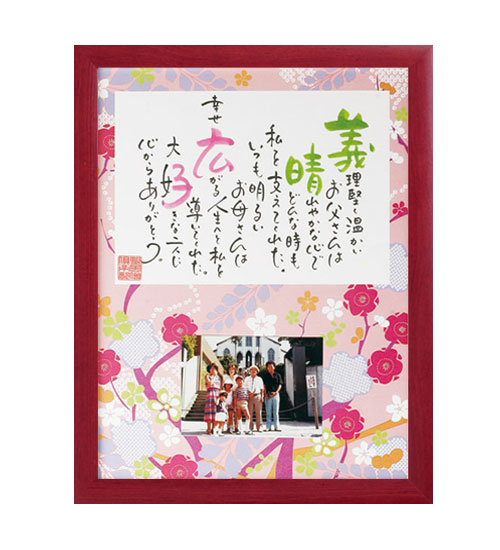 義理堅く温かい
お父さんは
晴れやかな心で
どんな時も
私を支えてくれた。
いつも明るい
お母さんは
幸せ広がる人生へと私を
導いてくれた。
大好きな二人に
心からありがとう。